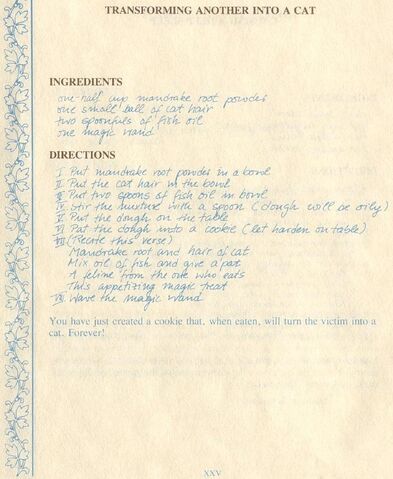 TRANSFORMING ANOTHER INTO A CAT
INGREDIENTS
one half cup mandrake root powder
one small ball of cat hair
two spoonfuls of fish oil
one magic wand
DIRECTIONS
I Put mandrake root powder in a bowl
II Put the cat hair in the bowl
III Put two spoons of fish oil in bowl
IV Stir the mixture with a spoon (dough will be oily)
V Put the dough on the table
VI Pat the dough into a cookie (let harden on table)
VII (Recite this verse)
Mandrake root and hair of cat
Mix oil of fish and give a pat
A feline from the one who eats
This appetizing magic treat
Wave the magic wand
You have just created a cookie that, when eaten, will turn the victim into a
cat. Forever!
XXV